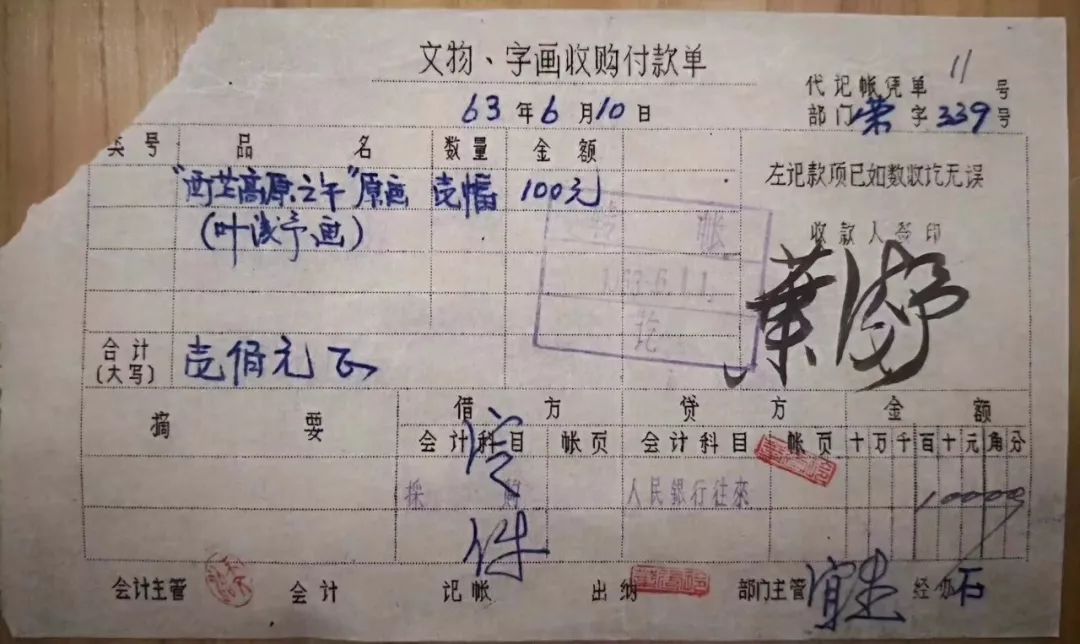 文物、字画收购付款单
代记帐凭单 11 号
63年6月10日
部门 荣 字 339 号
类号 品名 数量 金额
左记款项已如数收讫无误
"西芷高原之午"原画 壱幅 100元
(叶浅予画)
收款人签印
转帐
1963.6.11.
讫
葉浅予
合计
(大写) 壱佰元正
摘要 借方 贷方 金额
会计科目 帐页 会计科目 帐页 十万千百十元角分
採购 人民銀行往來 10000
件
会计主管 会计 记帐 出纳 部门主管 经办 石